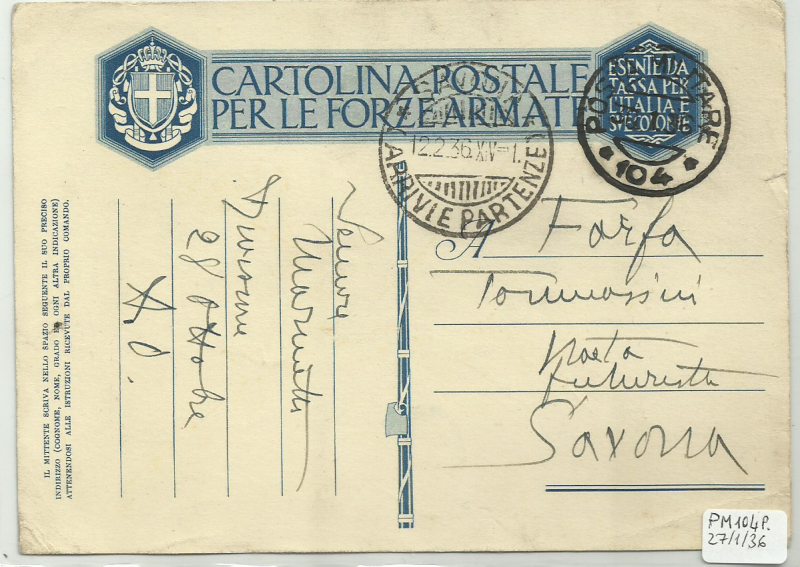 CARTOLINA POSTALE
PER LE FORZE ARMATE
ESENTE DA
TASSA PER
L'ITALIA E
SVE COLONIE
POSTA MILITARE
* 104 *
12.2.36.XIV-1.
(ARRIVI E PARTENZE)
IL MITTENTE SCRIVA NELLO SPAZIO SEGUENTE IL SUO PRECISO
INDIRIZZO (COGNOME, NOME, GRADO ED OGNI ALTRA INDICAZIONE)
ATTENENDOSI ALLE ISTRUZIONI RICEVUTE DAL PROPRIO COMANDO.
Marinetti
Divisione
28 Ottobre
A.O.
A
Farfa
Tommasini
Poeta
futurista
Savona
PM 104 P.
27/1/36